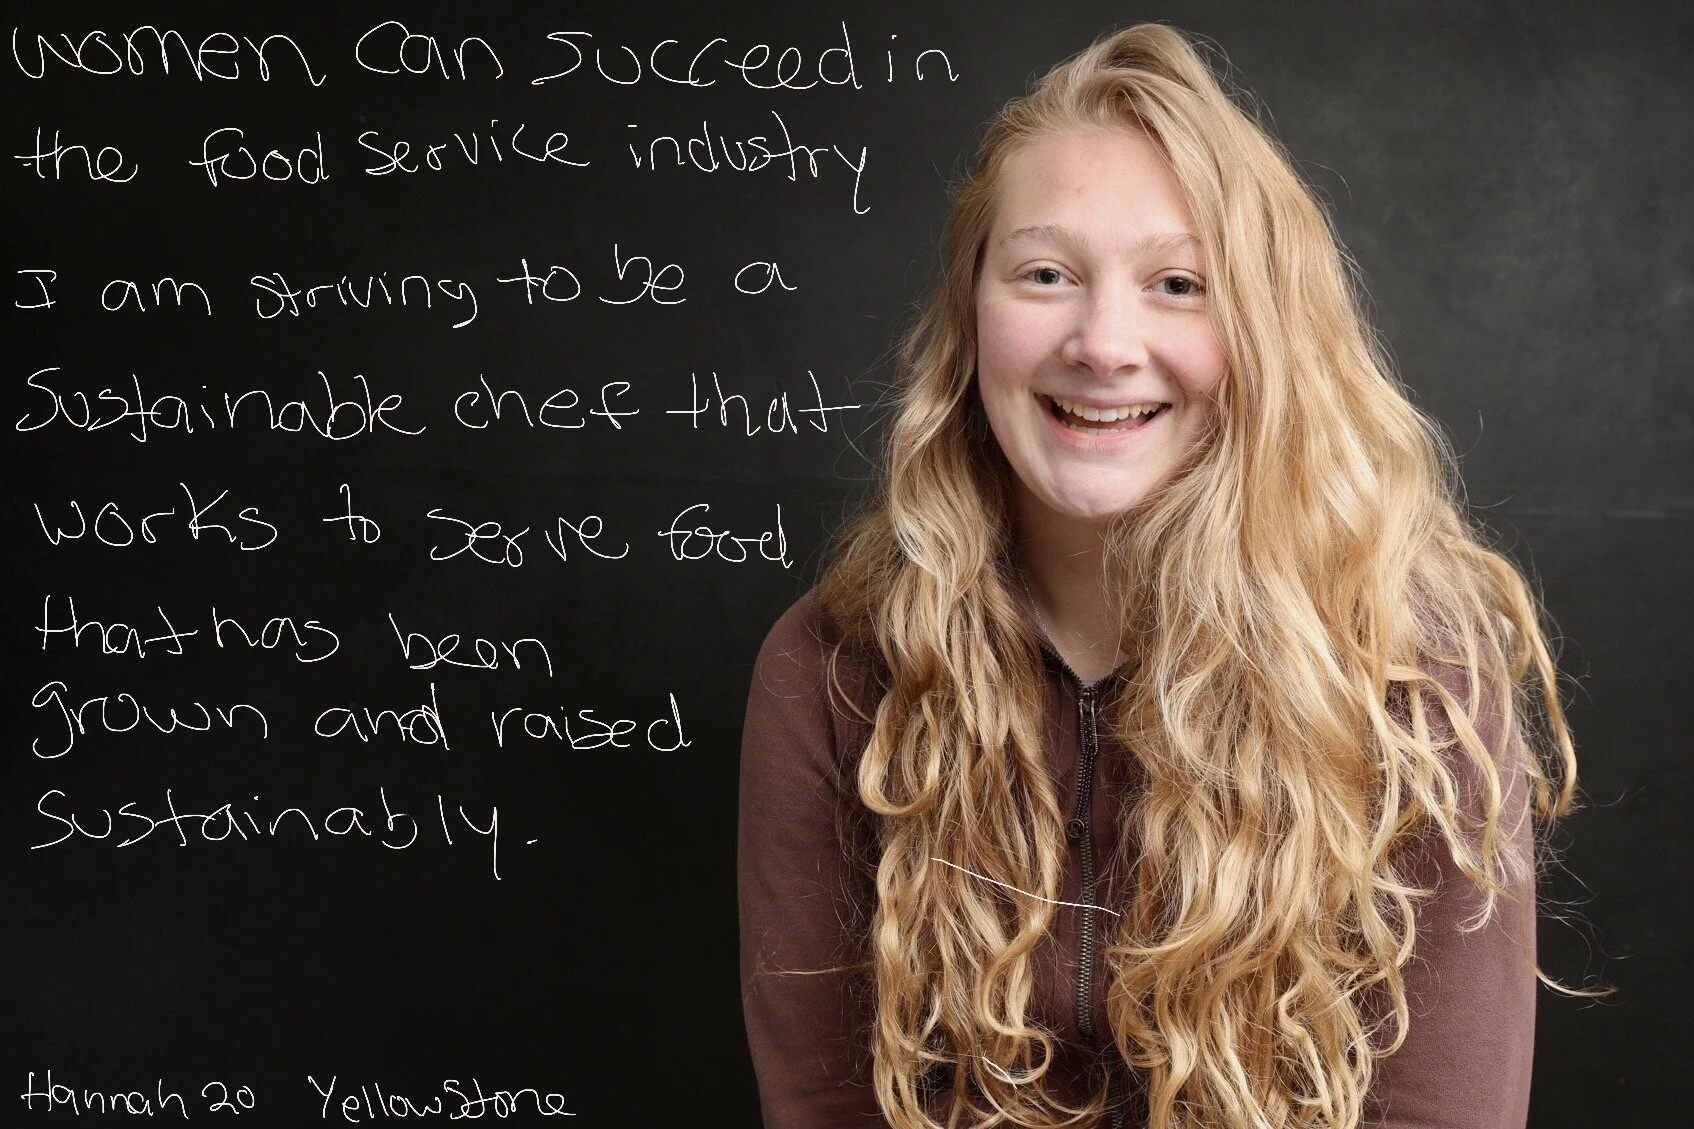 women can succeed in
the food service industry
I am striving to be a
Sustainable chef that
works to serve food
that has been
grown and raised
sustainably.
Hannah 20 Yellowstone